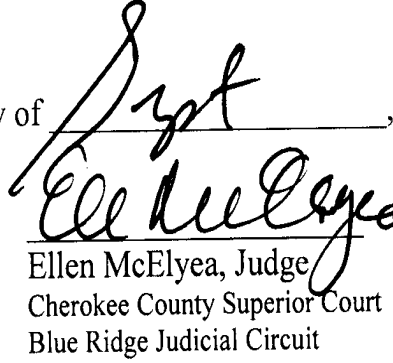 y of Sept,
Ellen McElyea
Ellen McElyea, Judge
Cherokee County Superior Court
Blue Ridge Judicial Circuit